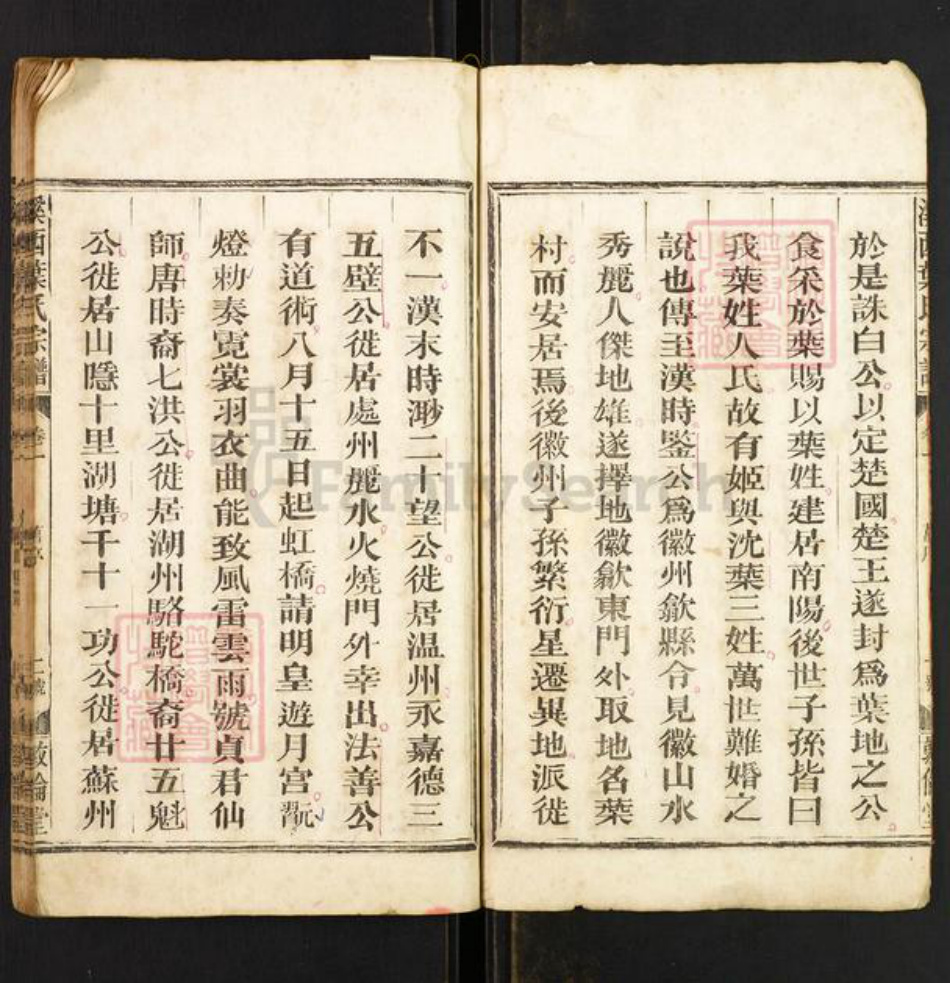 於是誅白公以定楚國楚王遂封爲葉地之公
食采於葉賜以葉姓建居南陽後世子孫皆曰
我葉姓人氏故有姬與沈葉三姓萬世難婚之
說也傳至漢時鍳公爲徽州歙縣令見徽山水
秀麗人傑地雄遂擇地徽歙東門外取地名葉
村而安居焉後徽州子孫繁衍星遷異地派徙
不一漢末時渺二十望公徙居温州永嘉德三
五壁公徙居處州麗水火燒門外幸出法善公
有道術八月十五日起虹橋請明皇遊月宮翫
燈勑奏霓裳羽衣曲能致風雷雲雨號貞君仙
師唐時裔七洪公徙居湖州駱駝橋裔廿五魁
公徙居山隱十里湖塘千十一功公徙居蘇州
溪西葉氏宗譜
卷一
二號
敦倫堂
FamilySearch